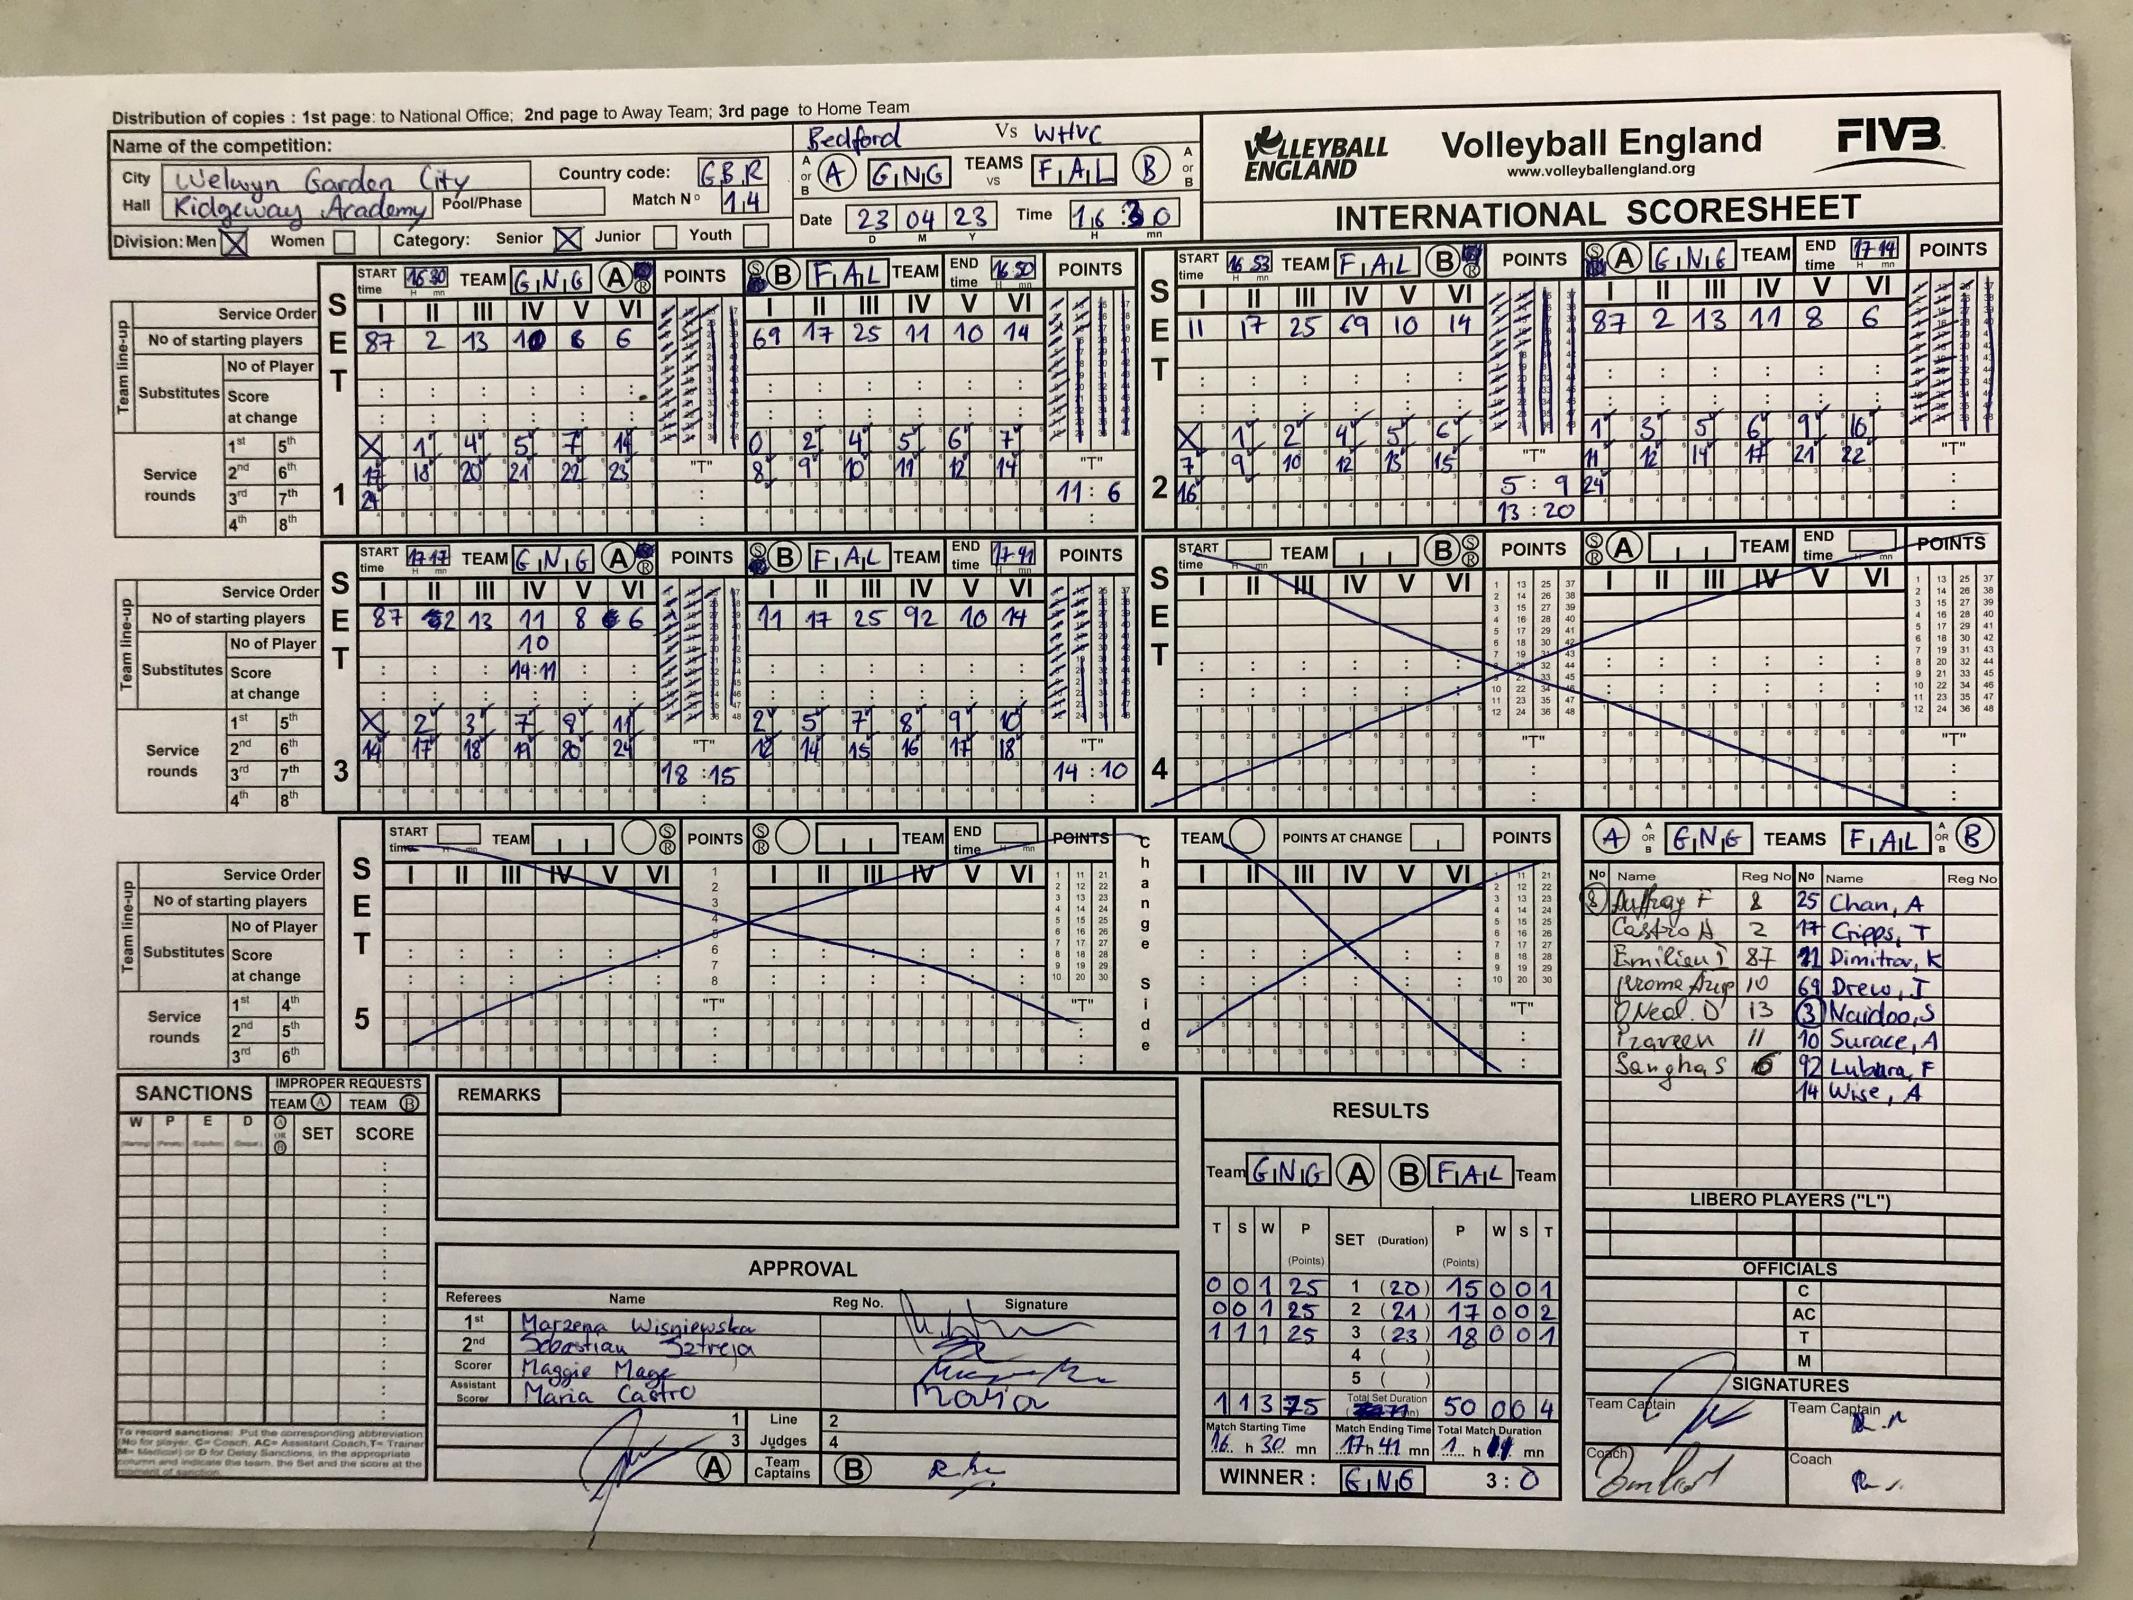 Distribution of copies : 1st page: to National Office; 2nd page to Away Team; 3rd page to Home Team
Name of the competition:
Bedford Vs WHVC
City Welwyn Garden City Country code: GBR
Hall Ridgeway Academy Pool/Phase Match N° 14
Division: Men X Women Category: Senior X Junior Youth
A or B A GNG TEAMS vs FAL B A or B
Date 23 04 23 Time 16 30
D M Y H mn
VOLLEYBALL ENGLAND
Volleyball England
www.volleyballengland.org
FIVB
INTERNATIONAL SCORESHEET
SET 1
START time 16 30 TEAM GNG A POINTS B FAL TEAM END time 16 50 POINTS
Service Order I II III IV V VI I II III IV V VI
No of starting players 87 2 13 10 8 6 69 17 25 11 10 14
Team line-up
Substitutes No of Player
Score at change
Service rounds
1st 5th X 1 4 5 7 14 0 2 4 5 6 7
2nd 6th 17 18 20 21 22 23 8 9 10 11 12 14
3rd 7th 24
4th 8th
"T" "T" 11 : 6
SET 2
START time 16 53 TEAM FAL B POINTS A GNG TEAM END time 17 14 POINTS
I II III IV V VI I II III IV V VI
11 17 25 69 10 14 87 2 13 11 8 6
X 1 2 4 5 6 1 3 5 6 9 10
7 9 10 12 13 15 11 12 14 17 21 22
16 24
"T" 5 : 9 "T"
13 : 20
SET 3
START time 17 17 TEAM GNG A POINTS B FAL TEAM END time 17 41 POINTS
Service Order I II III IV V VI I II III IV V VI
No of starting players 87 2 13 11 8 6 11 17 25 92 10 14
Team line-up
Substitutes No of Player 10
Score at change 14:11
Service rounds
1st 5th X 2 3 7 8 11 2 5 7 8 9 10
2nd 6th 14 17 18 19 20 24 12 14 15 16 17 18
3rd 7th
4th 8th
"T" 18 : 15 "T" 14 : 10
SET 4
START time TEAM B POINTS A TEAM END time POINTS
I II III IV V VI I II III IV V VI
"T" "T"
SET 5
START time TEAM POINTS TEAM END time POINTS Change Side TEAM POINTS AT CHANGE POINTS
Service Order I II III IV V VI I II III IV V VI I II III IV V VI
No of starting players
Team line-up
Substitutes No of Player
Score at change
Service rounds
1st 4th
2nd 5th
3rd 6th
"T" "T" "T"
A A OR B GNG TEAMS FAL A OR B B
No Name Reg No No Name Reg No
8 8 25 Chan, A
Castro A 2 17 Cripps, T
Emilian 87 11 Dimitrov, K
Jerome 10 69 Drew, J
O'Neal. D 13 3 Naidoo, S
Praveen 11 10 Surace, A
Sangha S 6 92 Lubara, F
14 Wise, A
LIBERO PLAYERS ("L")
OFFICIALS
C
AC
T
M
SIGNATURES
Team Captain Team Captain
Coach Coach
SANCTIONS IMPROPER REQUESTS
TEAM A TEAM B
W P E D A OR B SET SCORE
To record sanctions: Put the corresponding abbreviation
(No for player, C= Coach, AC= Assistant Coach, T= Trainer
M= Medical) or D for Delay Sanctions, in the appropriate
column and indicate the team, the Set and the score at the
moment of sanction.
REMARKS
APPROVAL
Referees Name Reg No. Signature
1st Marzena Wisniewska
2nd Sebastian Sztreja
Scorer Maggie Mage
Assistant Scorer Maria Castro Maria
1 Line 2
3 Judges 4
A Team Captains B
RESULTS
Team GNG A B FAL Team
T S W P (Points) SET (Duration) P (Points) W S T
0 0 1 25 1 (20) 15 0 0 1
0 0 1 25 2 (21) 17 0 0 2
1 1 1 25 3 (23) 18 0 0 1
4 ( )
5 ( )
1 1 3 75 Total Set Duration 50 0 0 4
Match Starting Time Match Ending Time Total Match Duration
16 h 30 mn 17 h 41 mn 1 h 11 mn
WINNER : GNG 3 : 0